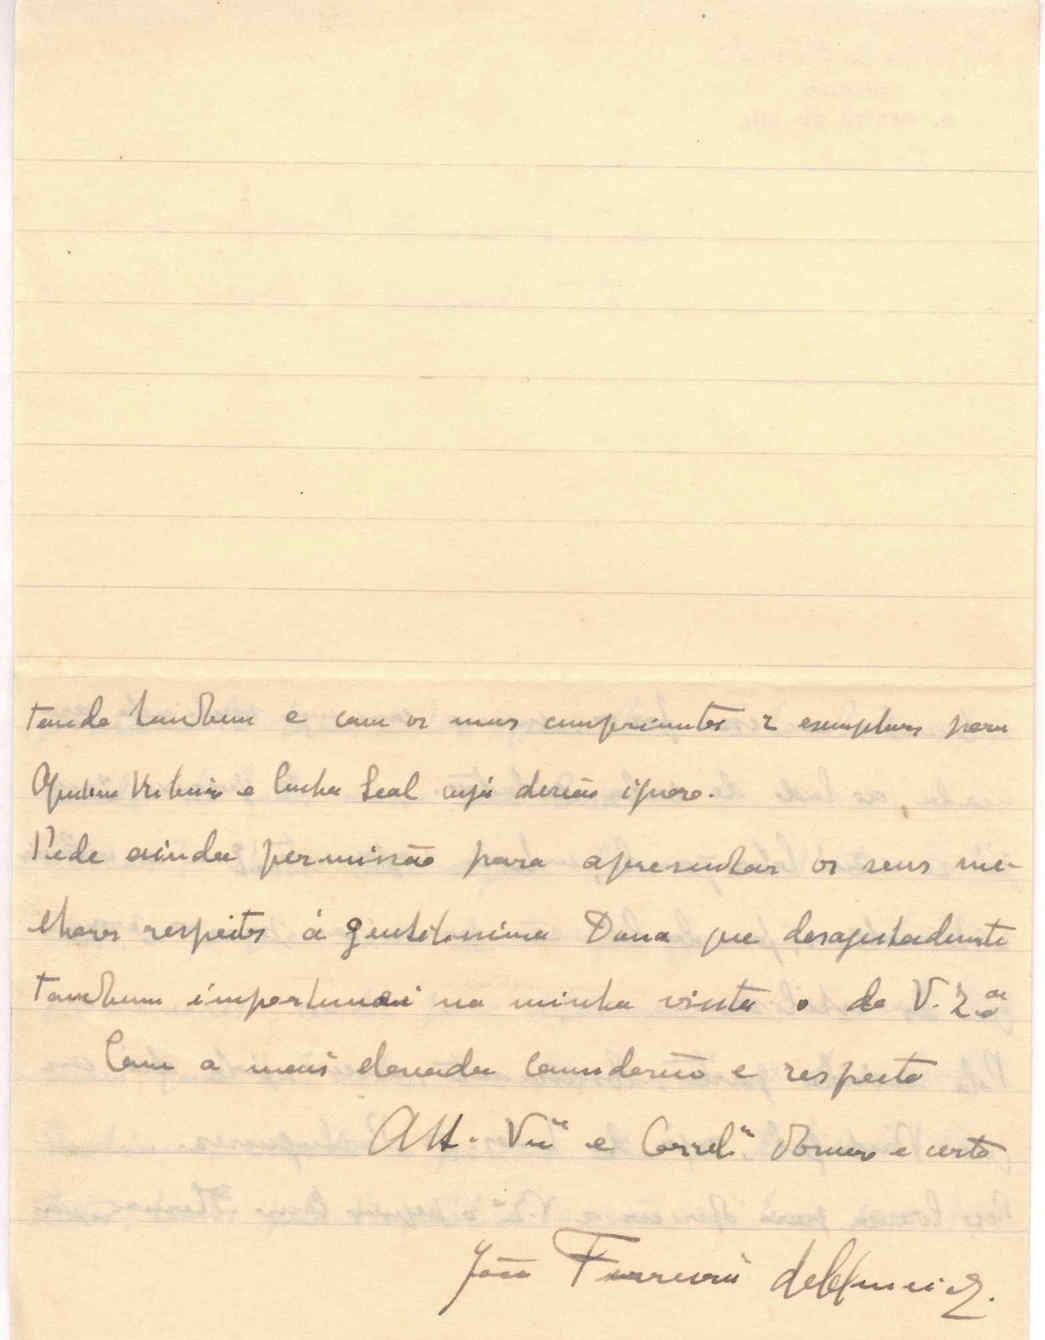 tando tambem e com os meus cumprimentos 2 exemplares para
e Cunha Leal cuja direcão ignoro.
Pede ainda permissão para apresentar os seus me-
lhores respeitos á gentilissima Dama que desageitadamente
tambem importunei na minha visita a de V. Exª
Com a mais elevada consideração e respeito
Att. Vnr e Correlº. obrigado e certo
João Ferreira de Almeida.